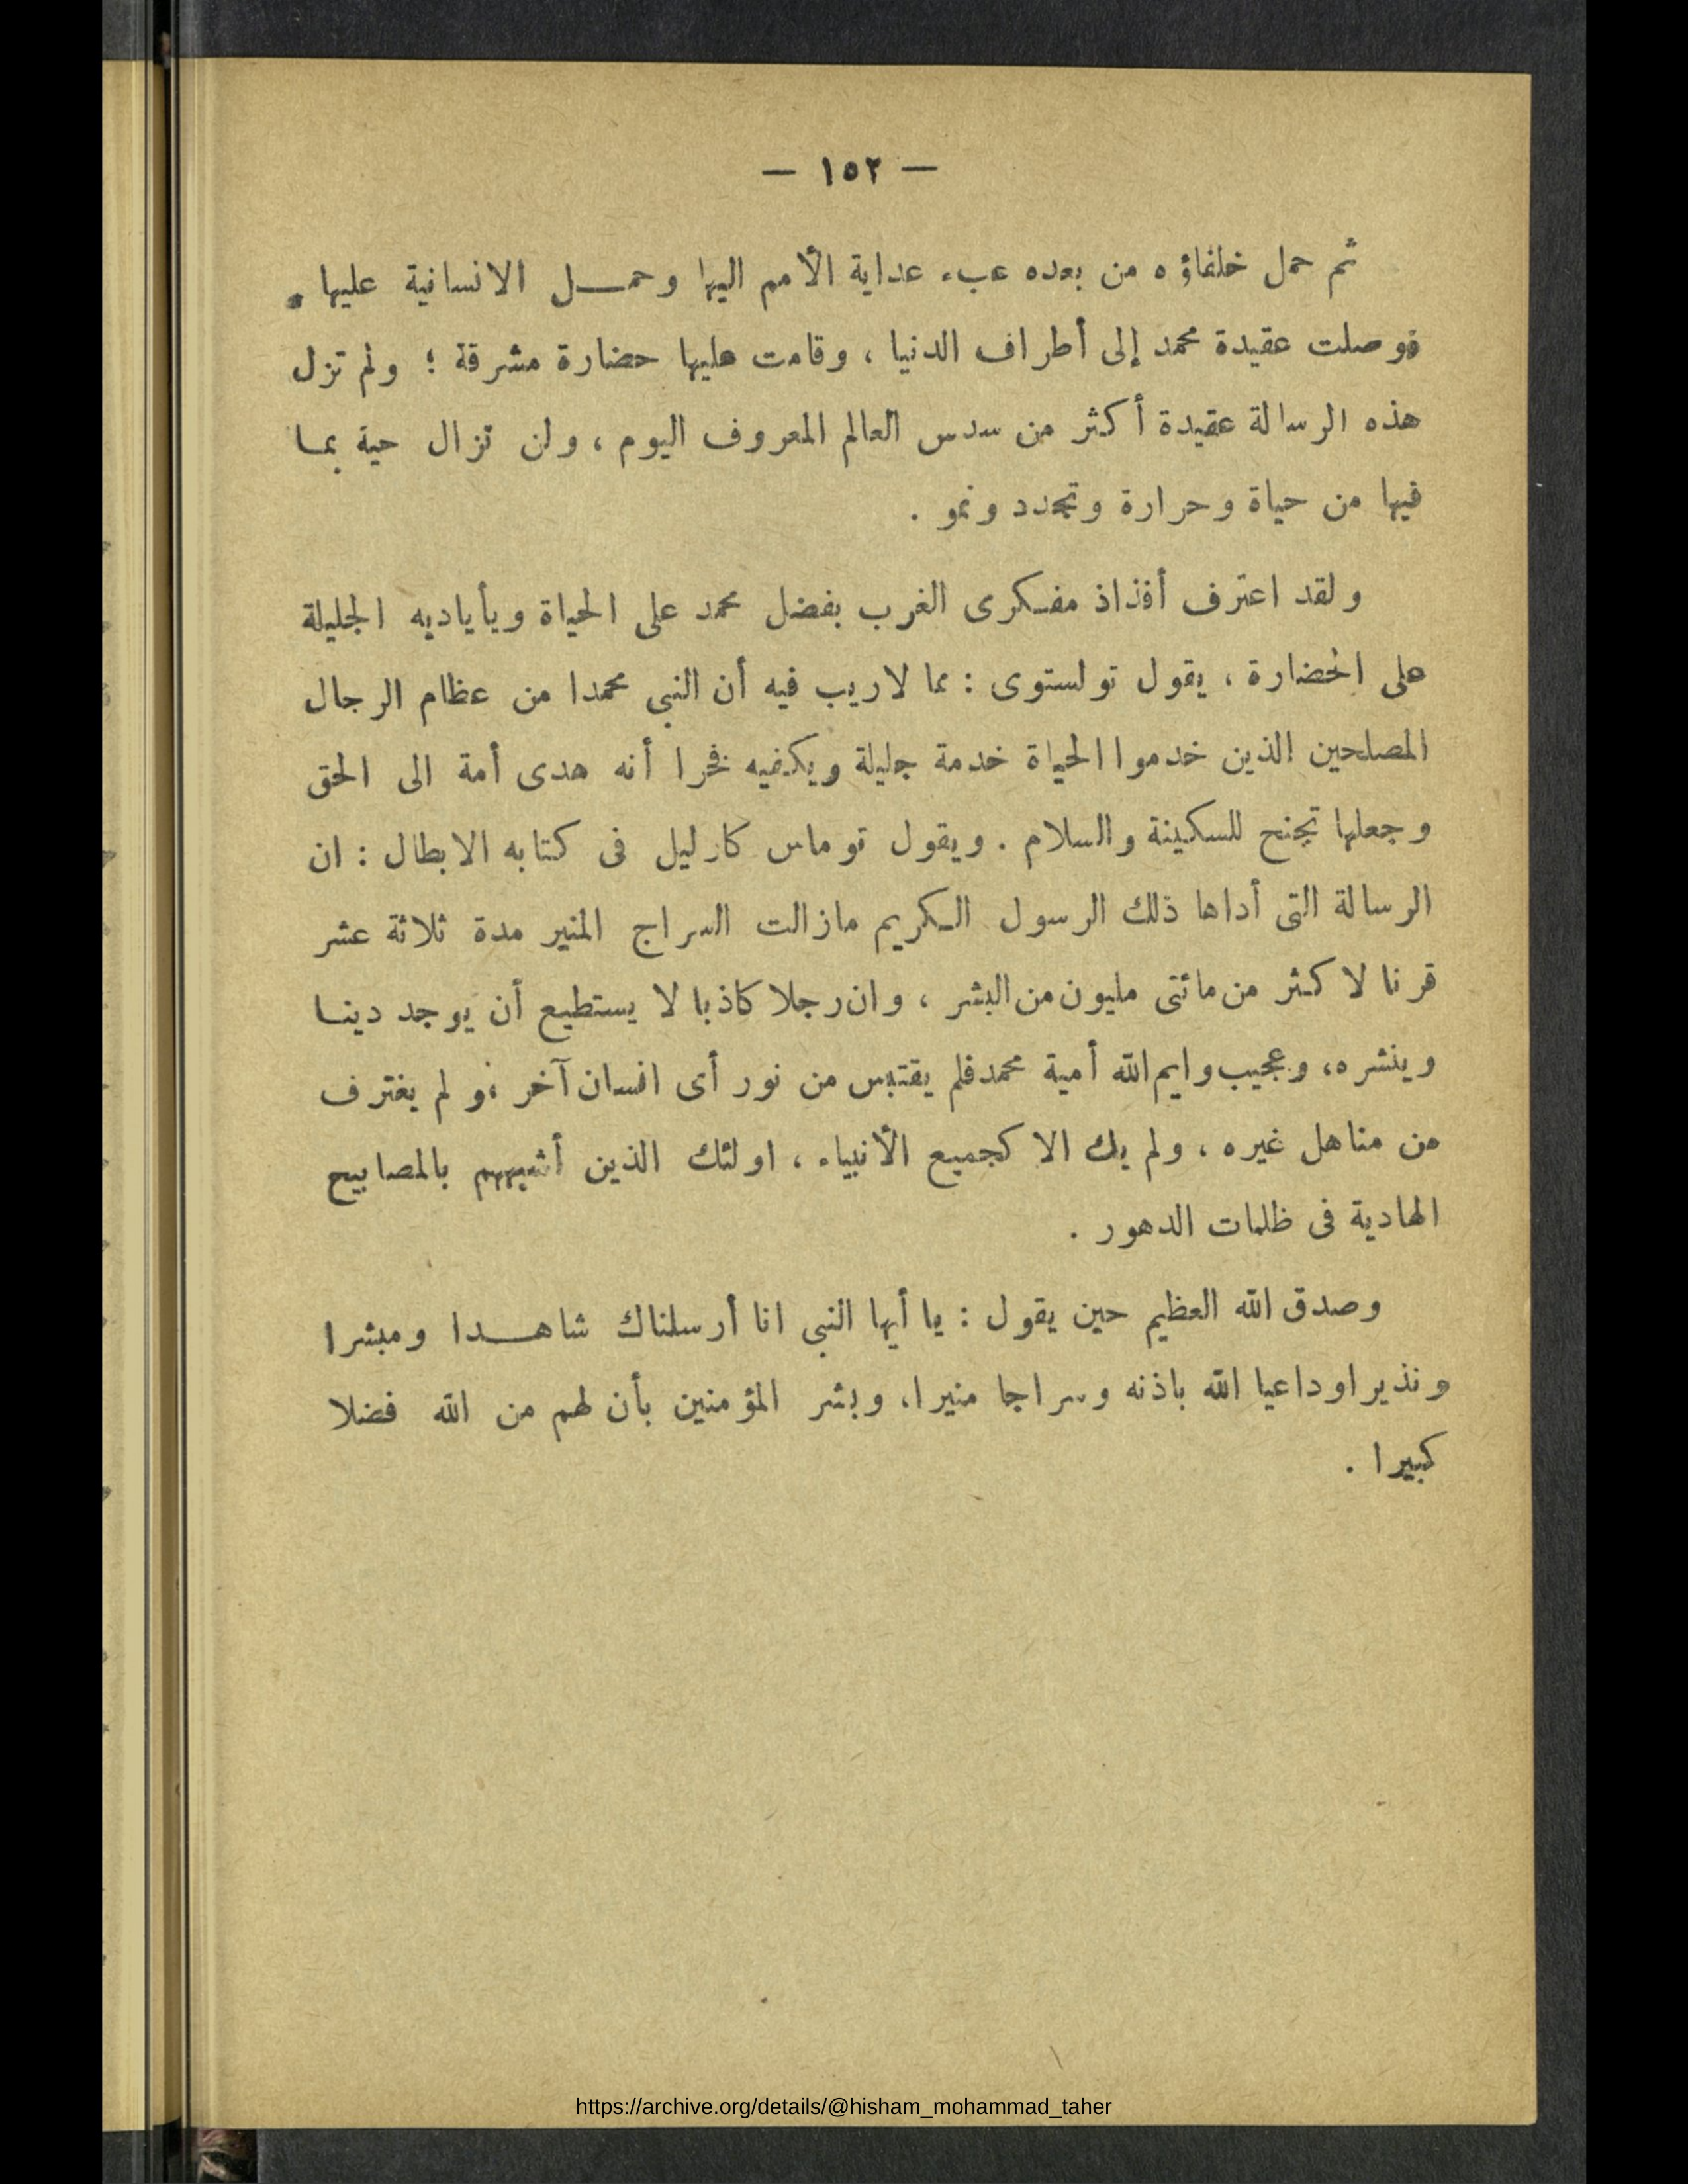 — ١٥٢ —
ثم حمل خلفاؤه من بعده عبء عداية الأمم اليها وحمـــل الانسانية عليها .
فوصلت عقيدة محمد إلى أطراف الدنيا ، وقامت عليها حضارة مشرقة ؛ ولم تزل
هذه الرسالة عقيدة أكثر من سدس العالم المعروف اليوم ، ولن تزال حية بما
فيها من حياة وحرارة وتجدد ونمو .
ولقد اعترف أفذاذ مفكرى الغرب بفضل محمد على الحياة وبأياديه الجليلة
على الحضارة ، يقول تولستوى : مما لاريب فيه أن النبي محمدا من عظام الرجال
المصلحين الذين خدموا الحياة خدمة جليلة ويكفيه فخرا أنه هدى أمة الى الحق
وجعلها تجنح للسكينة والسلام . ويقول توماس كارليل فى كتابه الابطال : ان
الرسالة التى أداها ذلك الرسول الكريم مازالت السراج المنير مدة ثلاثة عشر
قرنا لاكثر من مائتى مليون من البشر ، وان رجلا كاذبا لا يستطيع أن يوجد دينا
وينشره، وعجيب وايم الله أمية محمد فلم يقتبس من نور أى انسان آخر ،و لم يغترف
من مناهل غيره ، ولم يك الا كجميع الأنبياء ، اولئك الذين أشبههم بالمصابيح
الهادية فى ظلمات الدهور .
وصدق الله العظيم حين يقول : يا أيها النبى انا أرسلناك شاهــدا ومبشرا
ونذيرا وداعيا الله باذنه وسراجا منيرا، وبشر المؤمنين بأن لهم من الله فضلا
كبيرا .
https://archive.org/details/@hisham_mohammad_taher